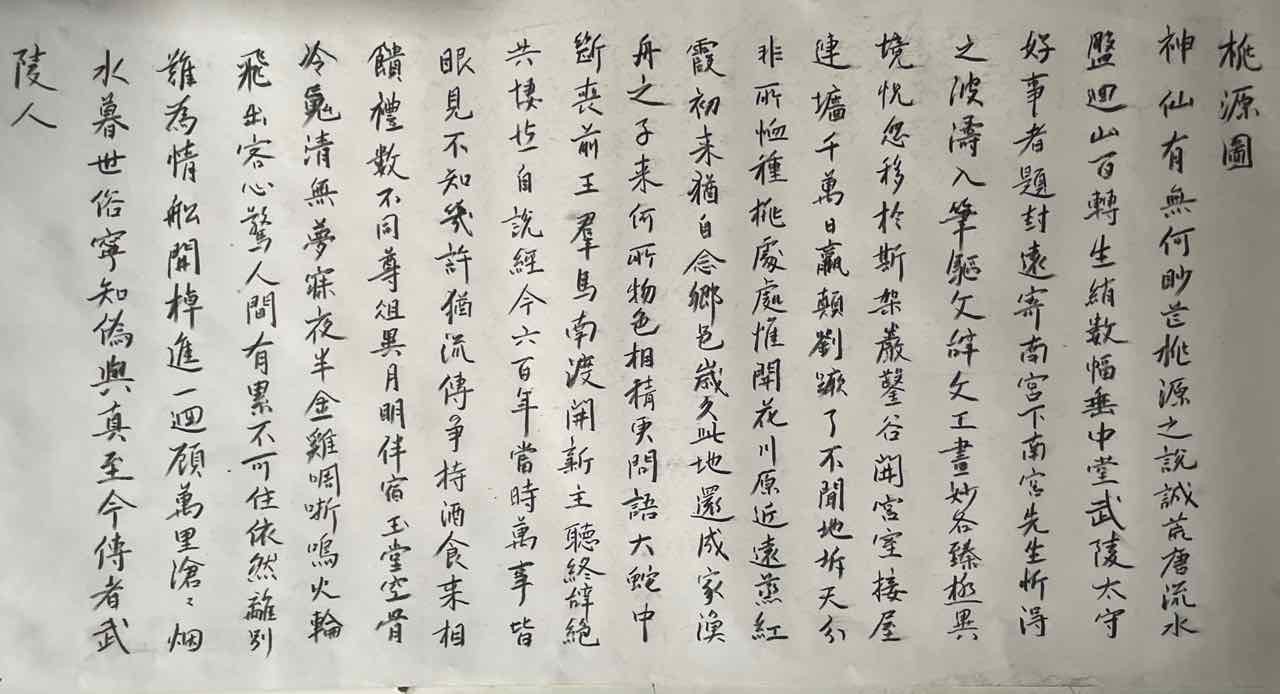 桃源圖
神仙有無何眇芒桃源之說誠荒唐流水
盤迴山百轉生綃数幅垂中堂武陵太守
好事者題封遠寄南宮下南宮先生忻得
之波濤入筆驅文辞文工畫妙各臻極異
境恍忽移於斯架巖鑿谷開宮室接屋
連墻千萬日嬴顛劉蹶了不聞地坼天分
非所恤種桃處處惟開花川原近遠蒸紅
霞初来猶自念鄉邑歲久此地還成家漁
舟之子来何所物色相猜更問語大蛇中
斷喪前王羣馬南渡開新主聽終辞絕
共悽然自說經今六百年當時萬事皆
眼見不知幾許猶流傳爭持酒食来相
饋禮數不同尊俎異月明伴宿玉堂空骨
冷魂清無夢寐夜半金雞啁哳鳴火輪
飛出客心驚人間有累不可住依然離別
難為情船開棹進一迴顧萬里滄〻烟
水暮世俗寧知偽與真至今傳者武
陵人